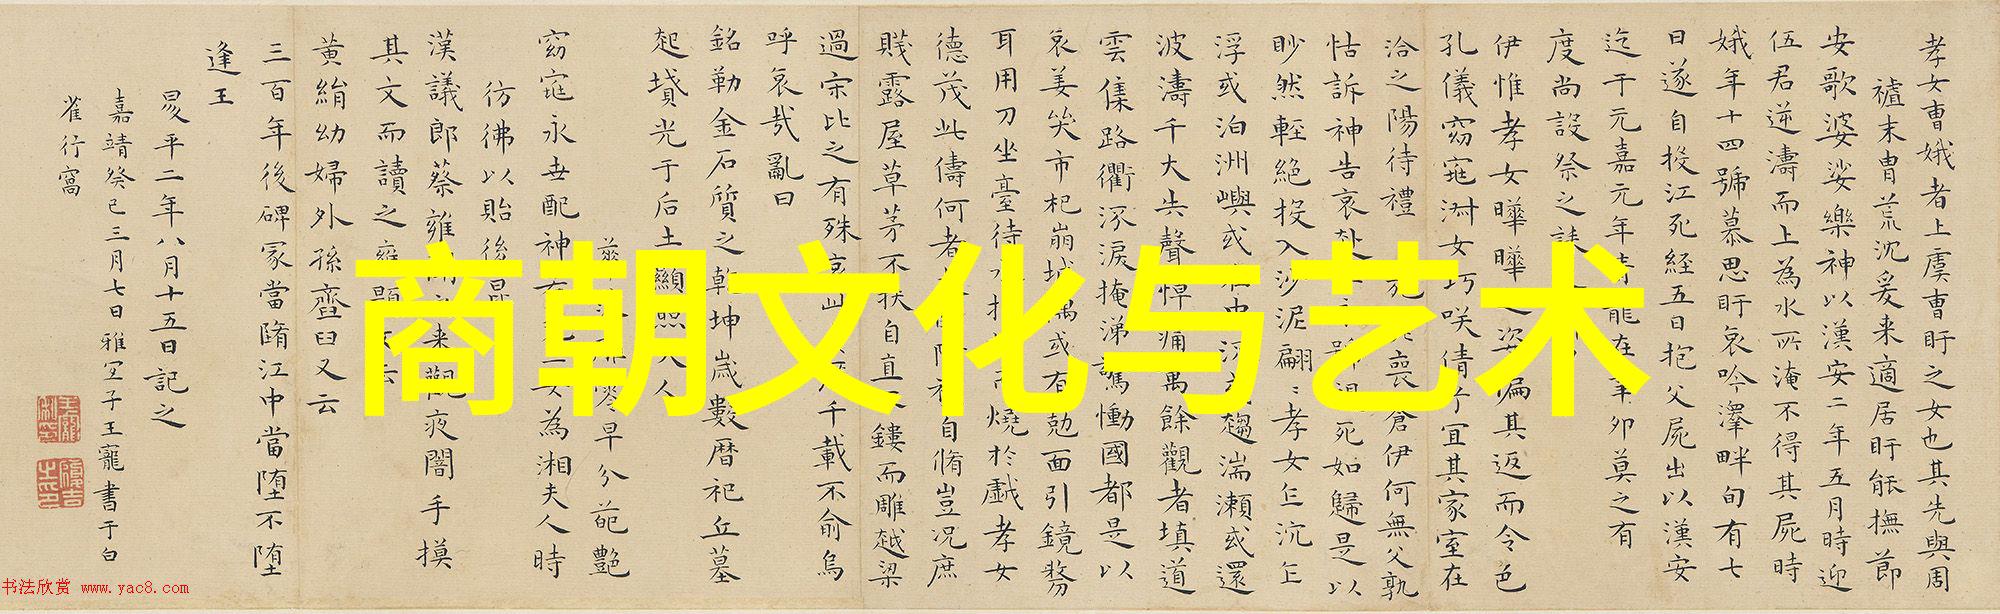 孝女曹娥者上虞曹盱之女也其先與周
末胄荒沉爰来適居盱能撫節
安歌婆娑樂神以漢安二年五月時迎
伍君逆濤而上為水所淹不得其屍時
娥年十四號慕思盱哀吟澤畔旬有七
日遂自投江死経五日抱父屍出以漢安
迄于元嘉元年青龍在辛卯莫之有
度尚設祭之誄
伊惟孝女曄曄之姿偏其返而令色
孔儀窈窕淑女巧咲倩兮宜其家室在
洽之陽待禮喪蒼伊何無父孰
怙訴神告哀赴死如歸是以
眇然輕絶投入沙泥翩〻孝女乍沉乍
浮或泊洲嶼或在中趨湍瀬或還
波濤千夫失聲悼痛萬餘觀者填道
雲集路衢流淚掩涕驚慟國都是以
哀姜哭市杞崩城隅或有勊面引鏡剺
耳用刀坐臺待燒於戲孝女
德茂此儔何者防禮自脩豈况庶
賤露屋草茅不扶自直不鏤而雕越梁
過宋比之有殊哀此千載不渝烏
呼哀哉亂曰
銘勒金石質之乾坤歲數曆祀丘墓
起墳光于后土顯照夫人
早分葩艷
窈窕永世配神女為湘夫人時
彷彿以貽後昆
漢議郎蔡雍聞来觀夜闇手摸
其文而讀之雍題文云
黄絹幼婦外孫韲臼又云
三百年後碑冢當墮江中當堕不堕
逢王
昇平二年八月十五日記之
嘉靖癸巳三月七日雅宜子王寵書于白
雀行窩
商朝文化与艺术
书法欣赏 www.yac8.com